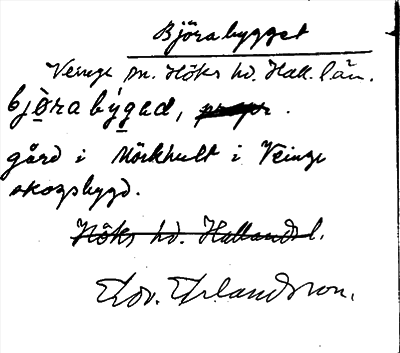 Björabygget
Veinge sn. Höks hd. Hall. län.
björa býged,
gård i Mörkhult i Veinge
skogsbygd.
Höks hd. Hallands l.
Edv. Erlandsson.